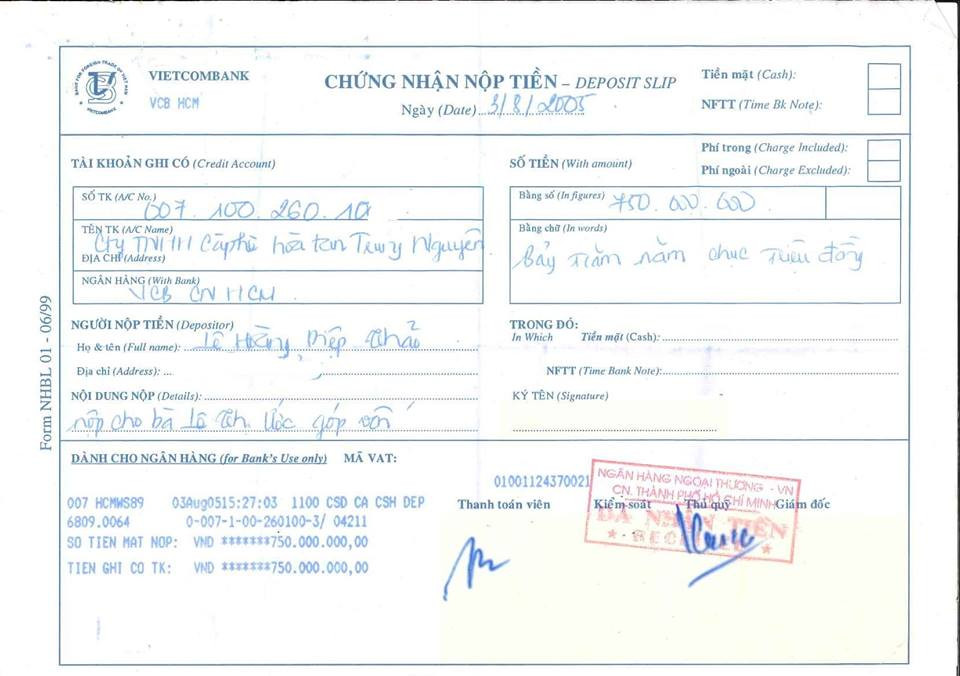 BANK FOR FOREIGN TRADE OF VIET NAM
VIETCOMBANK
VIETCOMBANK
VCB HCM
CHỨNG NHẬN NỘP TIỀN – DEPOSIT SLIP
Ngày (Date)...3/8/2005
Tiền mặt (Cash):
NFTT (Time Bk Note):
Phí trong (Charge Included):
Phí ngoài (Charge Excluded):
TÀI KHOẢN GHI CÓ (Credit Account)
SỐ TK (A/C No.)
007.100.260.10
TÊN TK (A/C Name)
Cty TNHH Càphê hòa tan Trung Nguyên
ĐỊA CHỈ (Address)
NGÂN HÀNG (With Bank)
VCB CN HCM
SỐ TIỀN (With amount)
Bằng số (In figures)
750.000.000
Bằng chữ (In words)
Bảy trăm năm chục triệu đồng
NGƯỜI NỘP TIỀN (Depositor)
Họ & tên (Full name): Lê Hoàng Diệp Thảo
Địa chỉ (Address): ...
NỘI DUNG NỘP (Details):
nộp cho bà Lê Th. Ước góp vốn
TRONG ĐÓ:
In Which Tiền mặt (Cash):
NFTT (Time Bank Note):
KÝ TÊN (Signature)
Form NHBL 01 - 06/99
DÀNH CHO NGÂN HÀNG (for Bank's Use only) MÃ VAT:
01001124370021
007 HCMWS89 03Aug0515:27:03 1100 CSD CA CSH DEP
6809.0064 0-007-1-00-260100-3/ 04211
SO TIEN MAT NOP: VND *******750.000.000,00
TIEN GHI CO TK: VND *******750.000.000,00
Thanh toán viên Kiểm soát Thủ quỹ Giám đốc
NGÂN HÀNG NGOẠI THƯƠNG - VN
CN. THÀNH PHỐ HỒ CHÍ MINH
ĐÃ NHẬN TIỀN